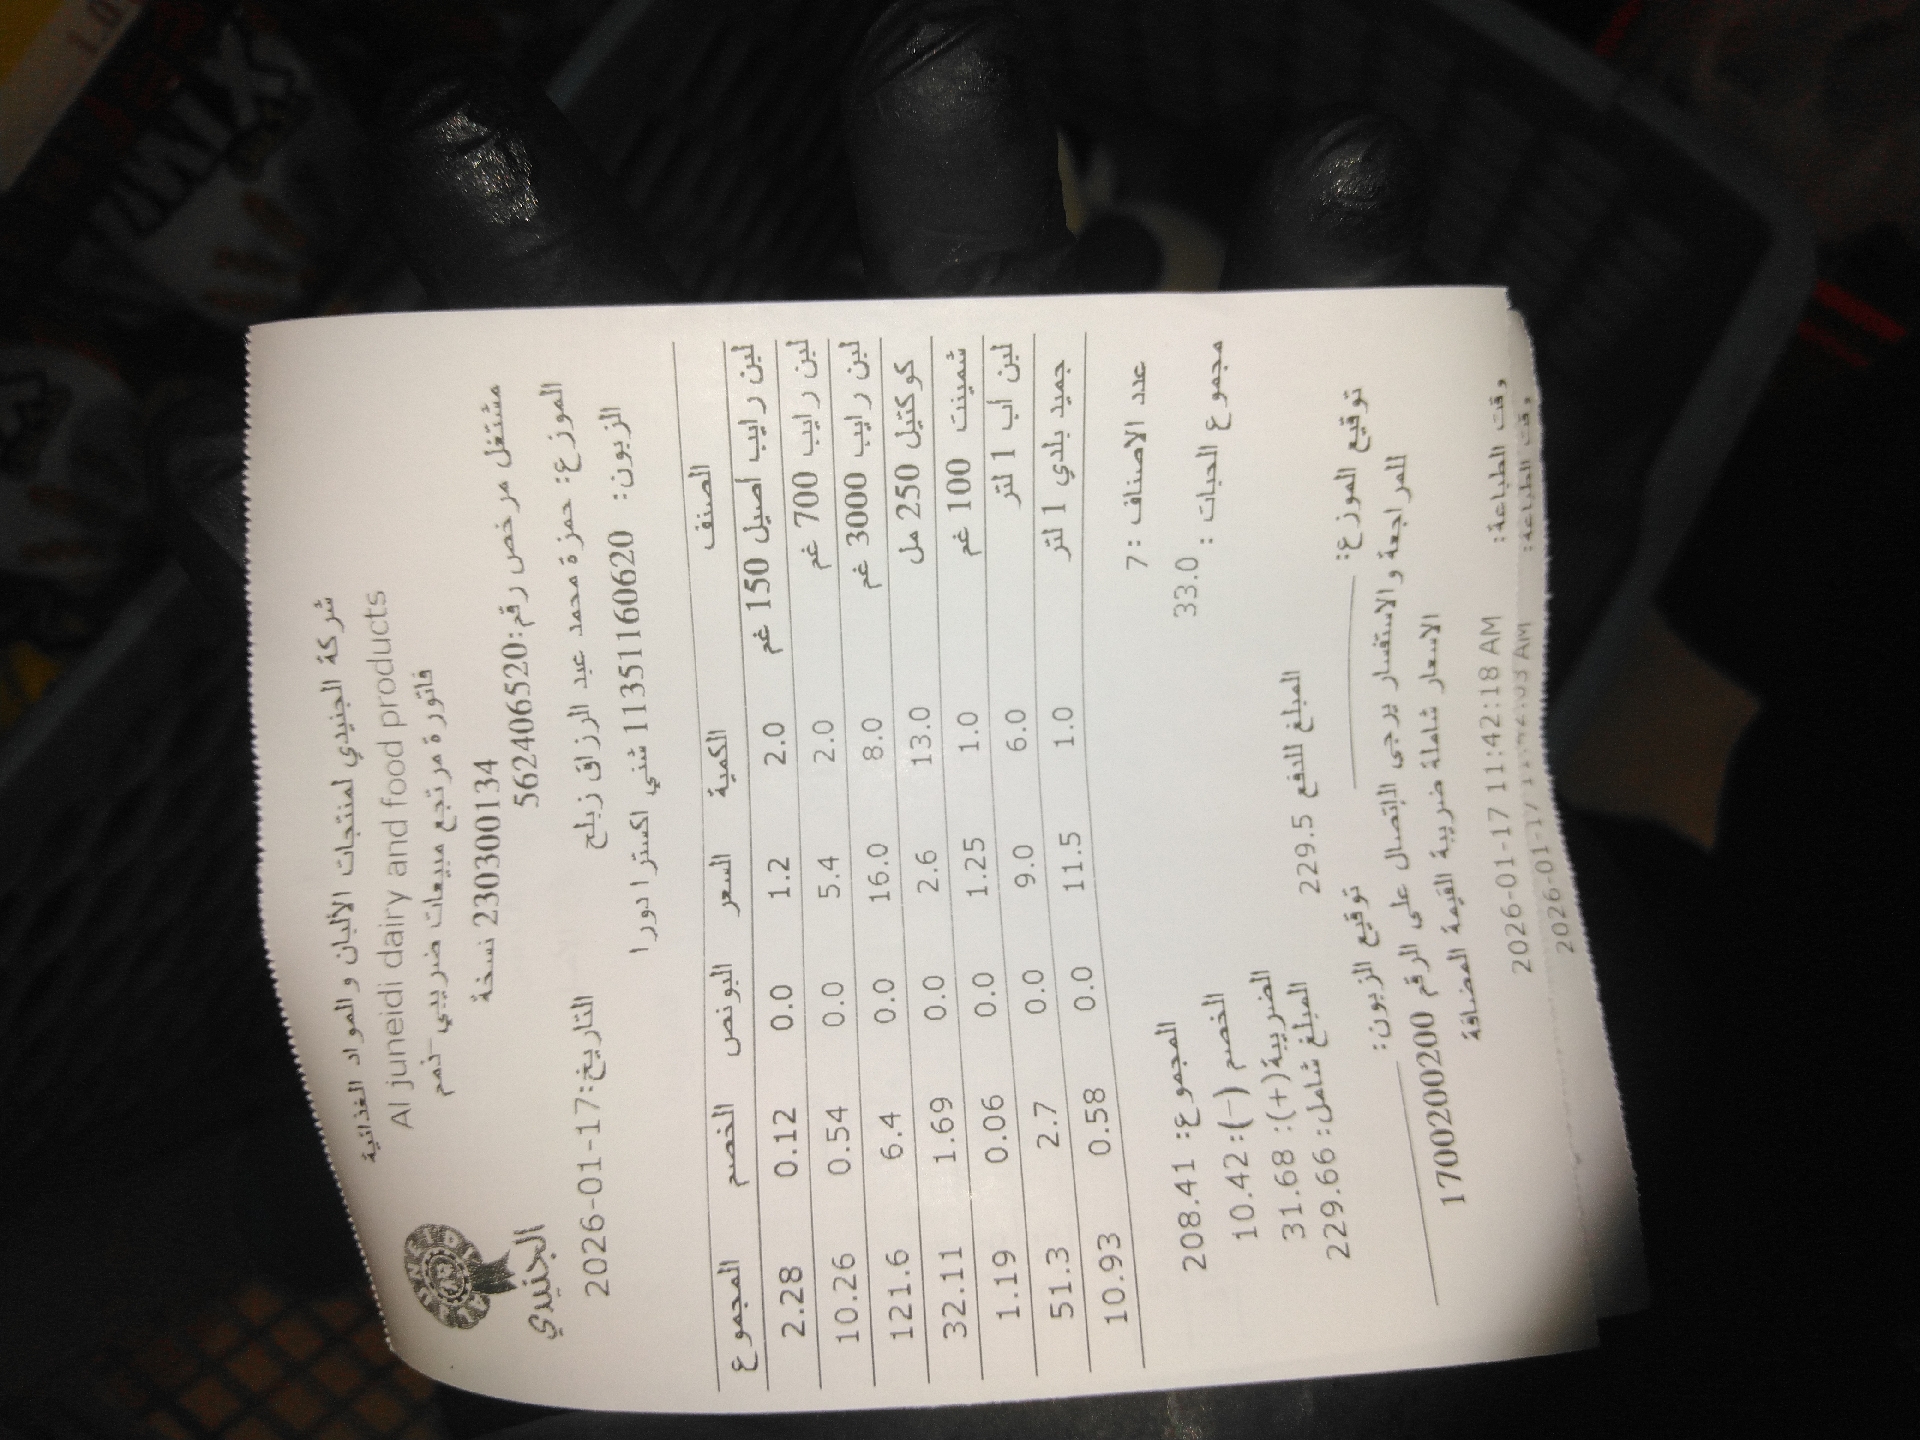 شركة الجنيدي لمنتجات الألبان والمواد الغذائية
Al juneidi dairy and food products
فاتورة مرتجع مبيعات ضريبي-ذمم
230300134 نسخة
مشتغل مرخص رقم:562406520
الجنيدي
الموزع: حمزة محمد عبد الرزاق زبلح
التاريخ:2026-01-17
الزبون: 1135116062​0 شني اكسترا دورا
الصنف الكمية السعر البونص الخصم المجموع
لبن رايب اصيل 150 غم 2.0 1.2 0.0 0.12 2.28
لبن رايب 700 غم 2.0 5.4 0.0 0.54 10.26
لبن رايب 3000 غم 8.0 16.0 0.0 6.4 121.6
كوكتيل 250 مل 13.0 2.6 0.0 1.69 32.11
شمينت 100 غم 1.0 1.25 0.0 0.06 1.19
لبن اب 1 لتر 6.0 9.0 0.0 2.7 51.3
جميد بلدي 1 لتر 1.0 11.5 0.0 0.58 10.93
عدد الاصناف :7
مجموع الحبات : 33.0
المجموع: 208.41
الخصم (-): 10.42
الضريبة(+): 31.68
المبلغ شامل: 229.66
المبلغ للدفع 229.5
توقيع الموزع: توقيع الزبون:
للمراجعة والاستفسار يرجى الإتصال على الرقم 1700200200
الاسعار شاملة ضريبة القيمة المضافة
وقت الطباعة: 2026-01-17 11:42:18 AM
وقت الطباعة: 2026-01-17